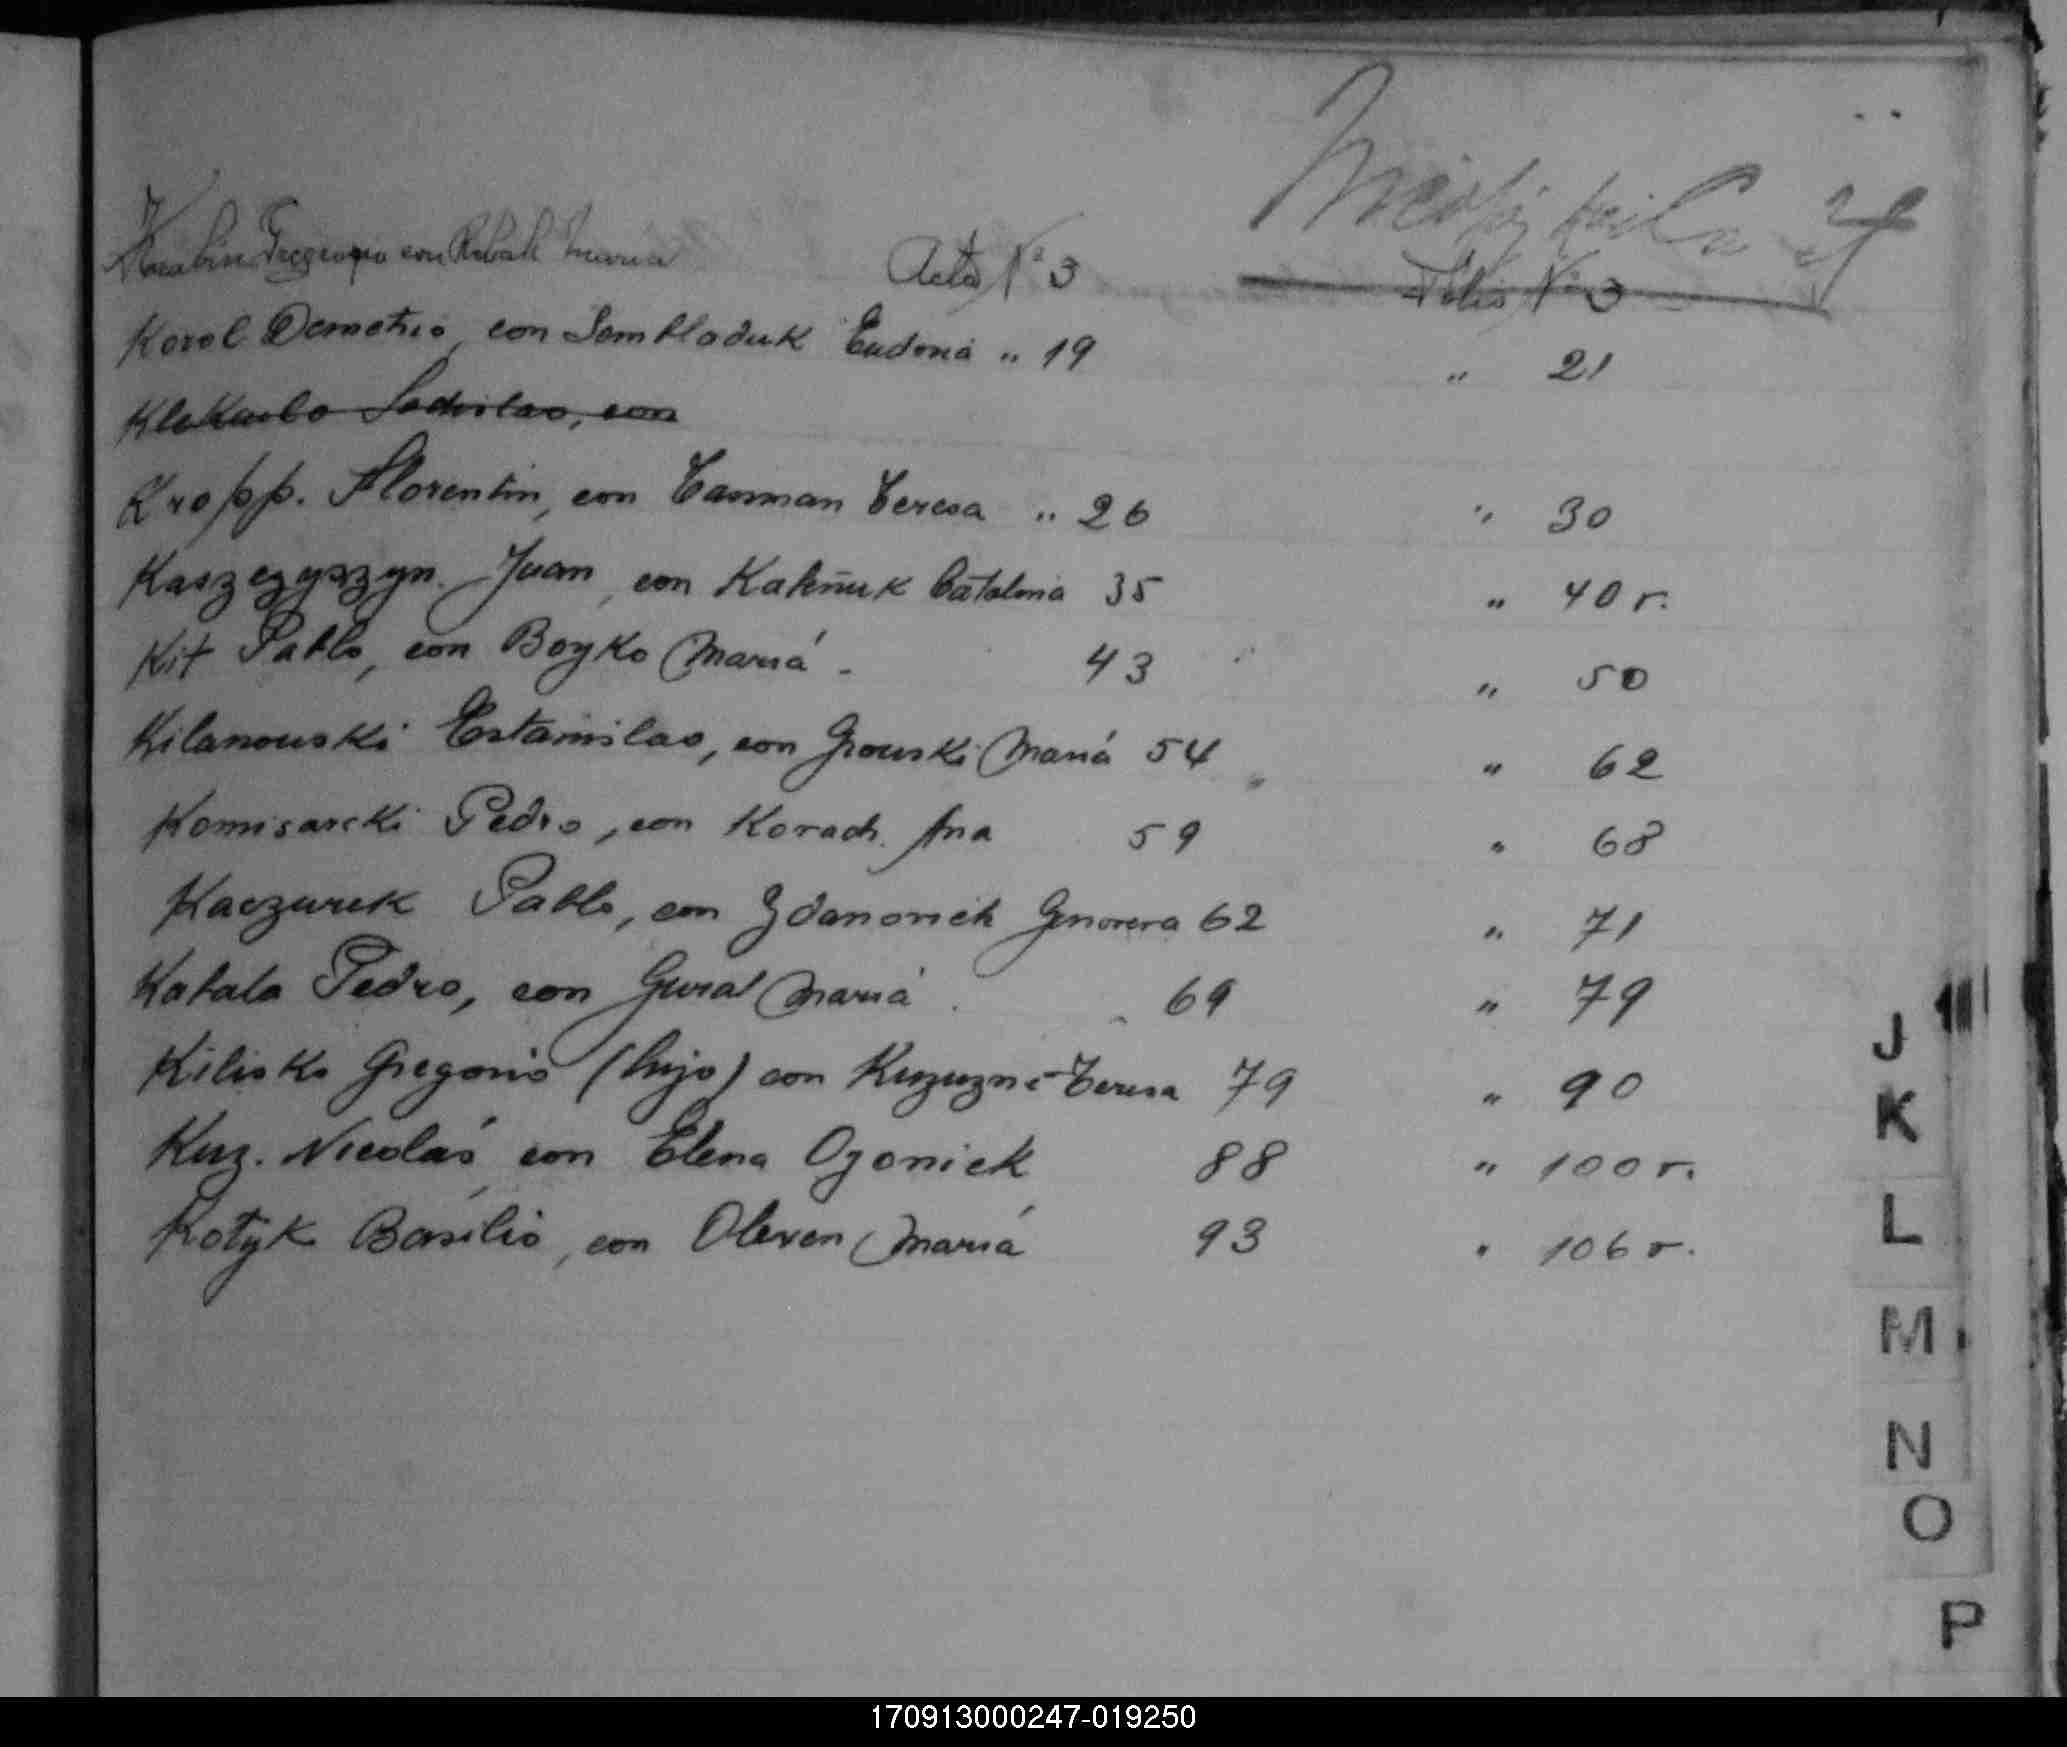 Gregorio con María Acta Nº 3 Folio Nº 3
Korol Demetrio, con Sembladuk Eudona " 19 " 21
Ladislao, con
Kropp. Florentin, con Tasman Teresa " 26 " 30
Kaszczyszyn. Juan, con Kateñuk Catalina 35 " 40 r.
Kit Pablo, con Boyko María - 43 " 50
Kilanowski Estanislao, con Grouski María 54 " 62
Komisarcki Pedro, con Korach. Ana 59 " 68
Kaczurek Pablo, con Zdanovich Genoveva 62 " 71
Kabala Pedro, con Gural María 69 " 79
Kilisko Gregorio (hijo) con Teresa 79 " 90
Kuz. Nicolás con Elena Ogoniek 88 " 100 r.
Kotyk Basilio, con Oleven María 93 " 106 r.
J
K
L
M
N
O
P
170913000247-019250